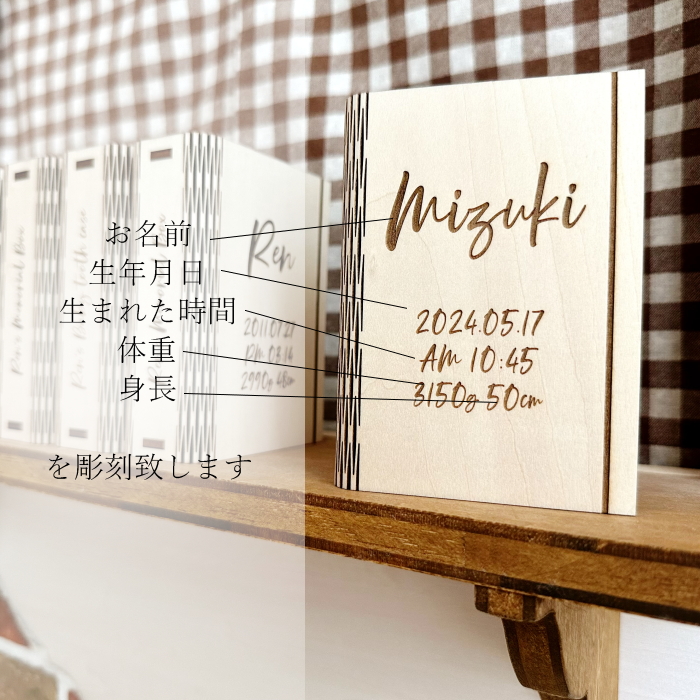 お名前
生年月日
生まれた時間
体重
身長
を彫刻致します
Mizuki
2024.05.17
AM 10:45
3150g 50cm
Ren
2011.07.27
PM 03:16
2990g 48cm
Ren's Memorial Box